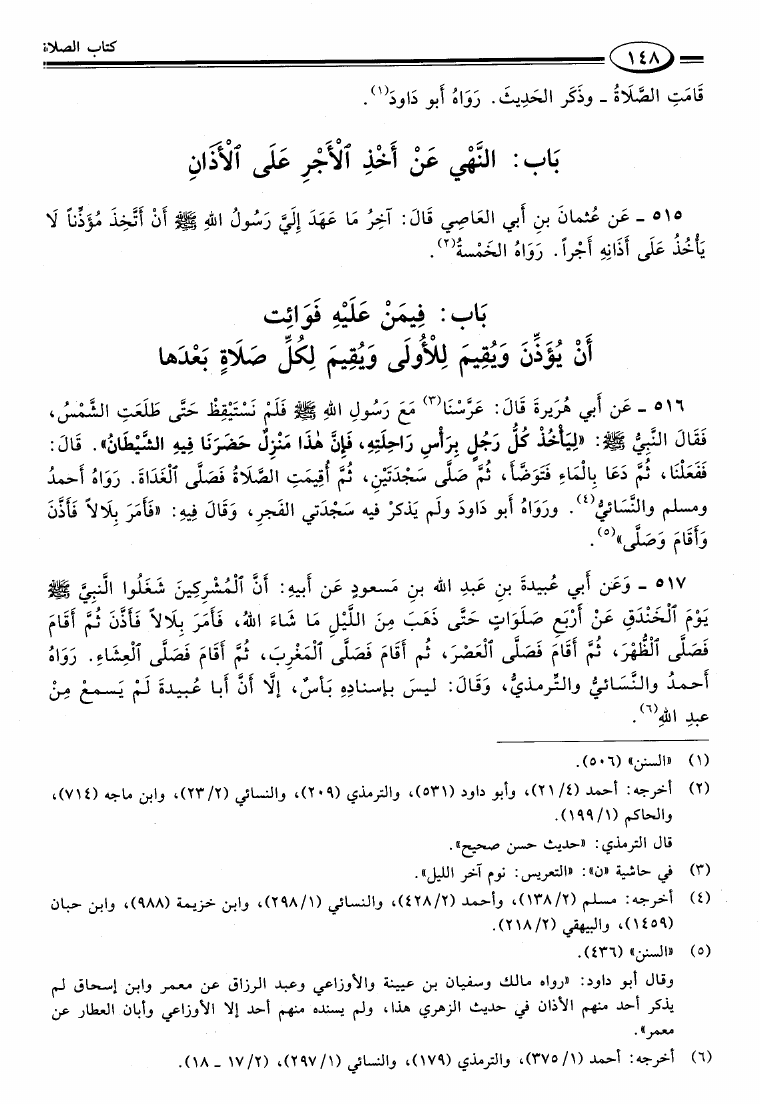 ١٤٨ كتاب الصلاة
قَامَتِ الصَّلَاةُ ـ وذَكَر الحَدِيثَ. رَوَاهُ أبو دَاودَ(١).
بَاب: النَّهْي عَنْ أَخْذِ الْأَجْرِ عَلَى الْأَذَانِ
٥١٥ ـ عَن عُثمانَ بنِ أبي العَاصِي قَالَ: آخِرُ مَا عَهَدَ إلَيَّ رَسُولُ اللهِ ﷺ أَنْ أَتَّخِذَ مُؤَذِّناً لَا
يَأْخُذُ عَلَى أَذَانِهِ أَجْراً. رَوَاهُ الخَمْسةُ(٢).
بَاب: فِيمَنْ عَلَيْهِ فَوَائِت
أَنْ يُؤَذِّنَ وَيُقِيمَ لِلْأُولَى وَيُقِيمَ لِكُلِّ صَلَاةٍ بَعْدَها
٥١٦ ـ عَن أبي هُرَيرةَ قَالَ: عَرَّسْنَا(٣) مَعَ رَسُولِ اللهِ ﷺ فَلَمْ نَسْتَيْقِظْ حَتَّى طَلَعَتِ الشَّمْسُ،
فَقَالَ النَّبِيُّ ﷺ: «لِيَأْخُذْ كُلُّ رَجُلٍ بِرَأْسِ رَاحِلَتِهِ، فَإِنَّ هٰذَا مَنْزِلٌ حَضَرَنَا فِيهِ الشَّيْطَانُ». قَالَ:
فَفَعَلْنَا، ثُمَّ دَعَا بِالْمَاءِ فَتَوَضَّأَ، ثُمَّ صَلَّى سَجْدَتَيْنِ، ثُمَّ أُقِيمَتِ الصَّلَاةُ فَصَلَّى الْغَدَاةَ. رَوَاهُ أحمدُ
ومسلم والنَّسائيُّ(٤). ورَوَاهُ أبو دَاودَ ولَم يَذكرْ فيه سَجْدَتي الفَجرِ، وَقَالَ فِيهِ: «فَأَمَرَ بِلَالاً فَأَذَّنَ
وَأَقَامَ وَصَلَّى»(٥).
٥١٧ ـ وَعَن أبي عُبيدةَ بنِ عَبدِ الله بنِ مَسعودٍ عَن أبيهِ: أَنَّ الْمُشْرِكِينَ شَغَلُوا النَّبِيَّ ﷺ
يَوْمَ الْخَنْدَقِ عَنْ أَرْبَعِ صَلَوَاتٍ حَتَّى ذَهَبَ مِنَ اللَّيْلِ مَا شَاءَ اللهُ، فَأَمَرَ بِلَالاً فَأَذَّنَ ثُمَّ أَقَامَ
فَصَلَّى الْظُّهْرَ، ثُمَّ أَقَامَ فَصَلَّى الْعَصْرَ، ثُم أَقَامَ فَصَلَّى الْمَغْرِبَ، ثُمَّ أَقَامَ فَصَلَّى الْعِشَاءِ. رَوَاهُ
أحمدُ والنَّسائيُّ والتِّرمذيُّ، وَقَالَ: ليسَ بإسنادِهِ بَأسٌ، إلَّا أَنَّ أبا عُبيدةَ لَمْ يَسمعْ مِنْ
عبدِ اللهِ(٦).
(١) «السنن» (٥٠٦).
(٢) أخرجه: أحمد (٢١/٤)، وأبو داود (٥٣١)، والترمذي (٢٠٩)، والنسائي (٢٣/٢)، وابن ماجه (٧١٤)،
والحاكم (١٩٩/١).
قال الترمذي: «حديث حسن صحيح».
(٣) في حاشية «ن»: «التعريس: نوم آخر الليل».
(٤) أخرجه: مسلم (١٣٨/٢)، وأحمد (٤٢٨/٢)، والنسائي (٢٩٨/١)، وابن خزيمة (٩٨٨)، وابن حبان
(١٤٥٩)، والبيهقي (٢١٨/٢).
(٥) «السنن» (٤٣٦).
وقال أبو داود: «رواه مالك وسفيان بن عيينة والأوزاعي وعبد الرزاق عن معمر وابن إسحاق لم
يذكر أحد منهم الأذان في حديث الزهري هذا، ولم يسنده منهم أحد إلا الأوزاعي وأبان العطار عن
معمر».
(٦) أخرجه: أحمد (٣٧٥/١)، والترمذي (١٧٩)، والنسائي (٢٩٧/١)، (١٧/٢ ـ ١٨).